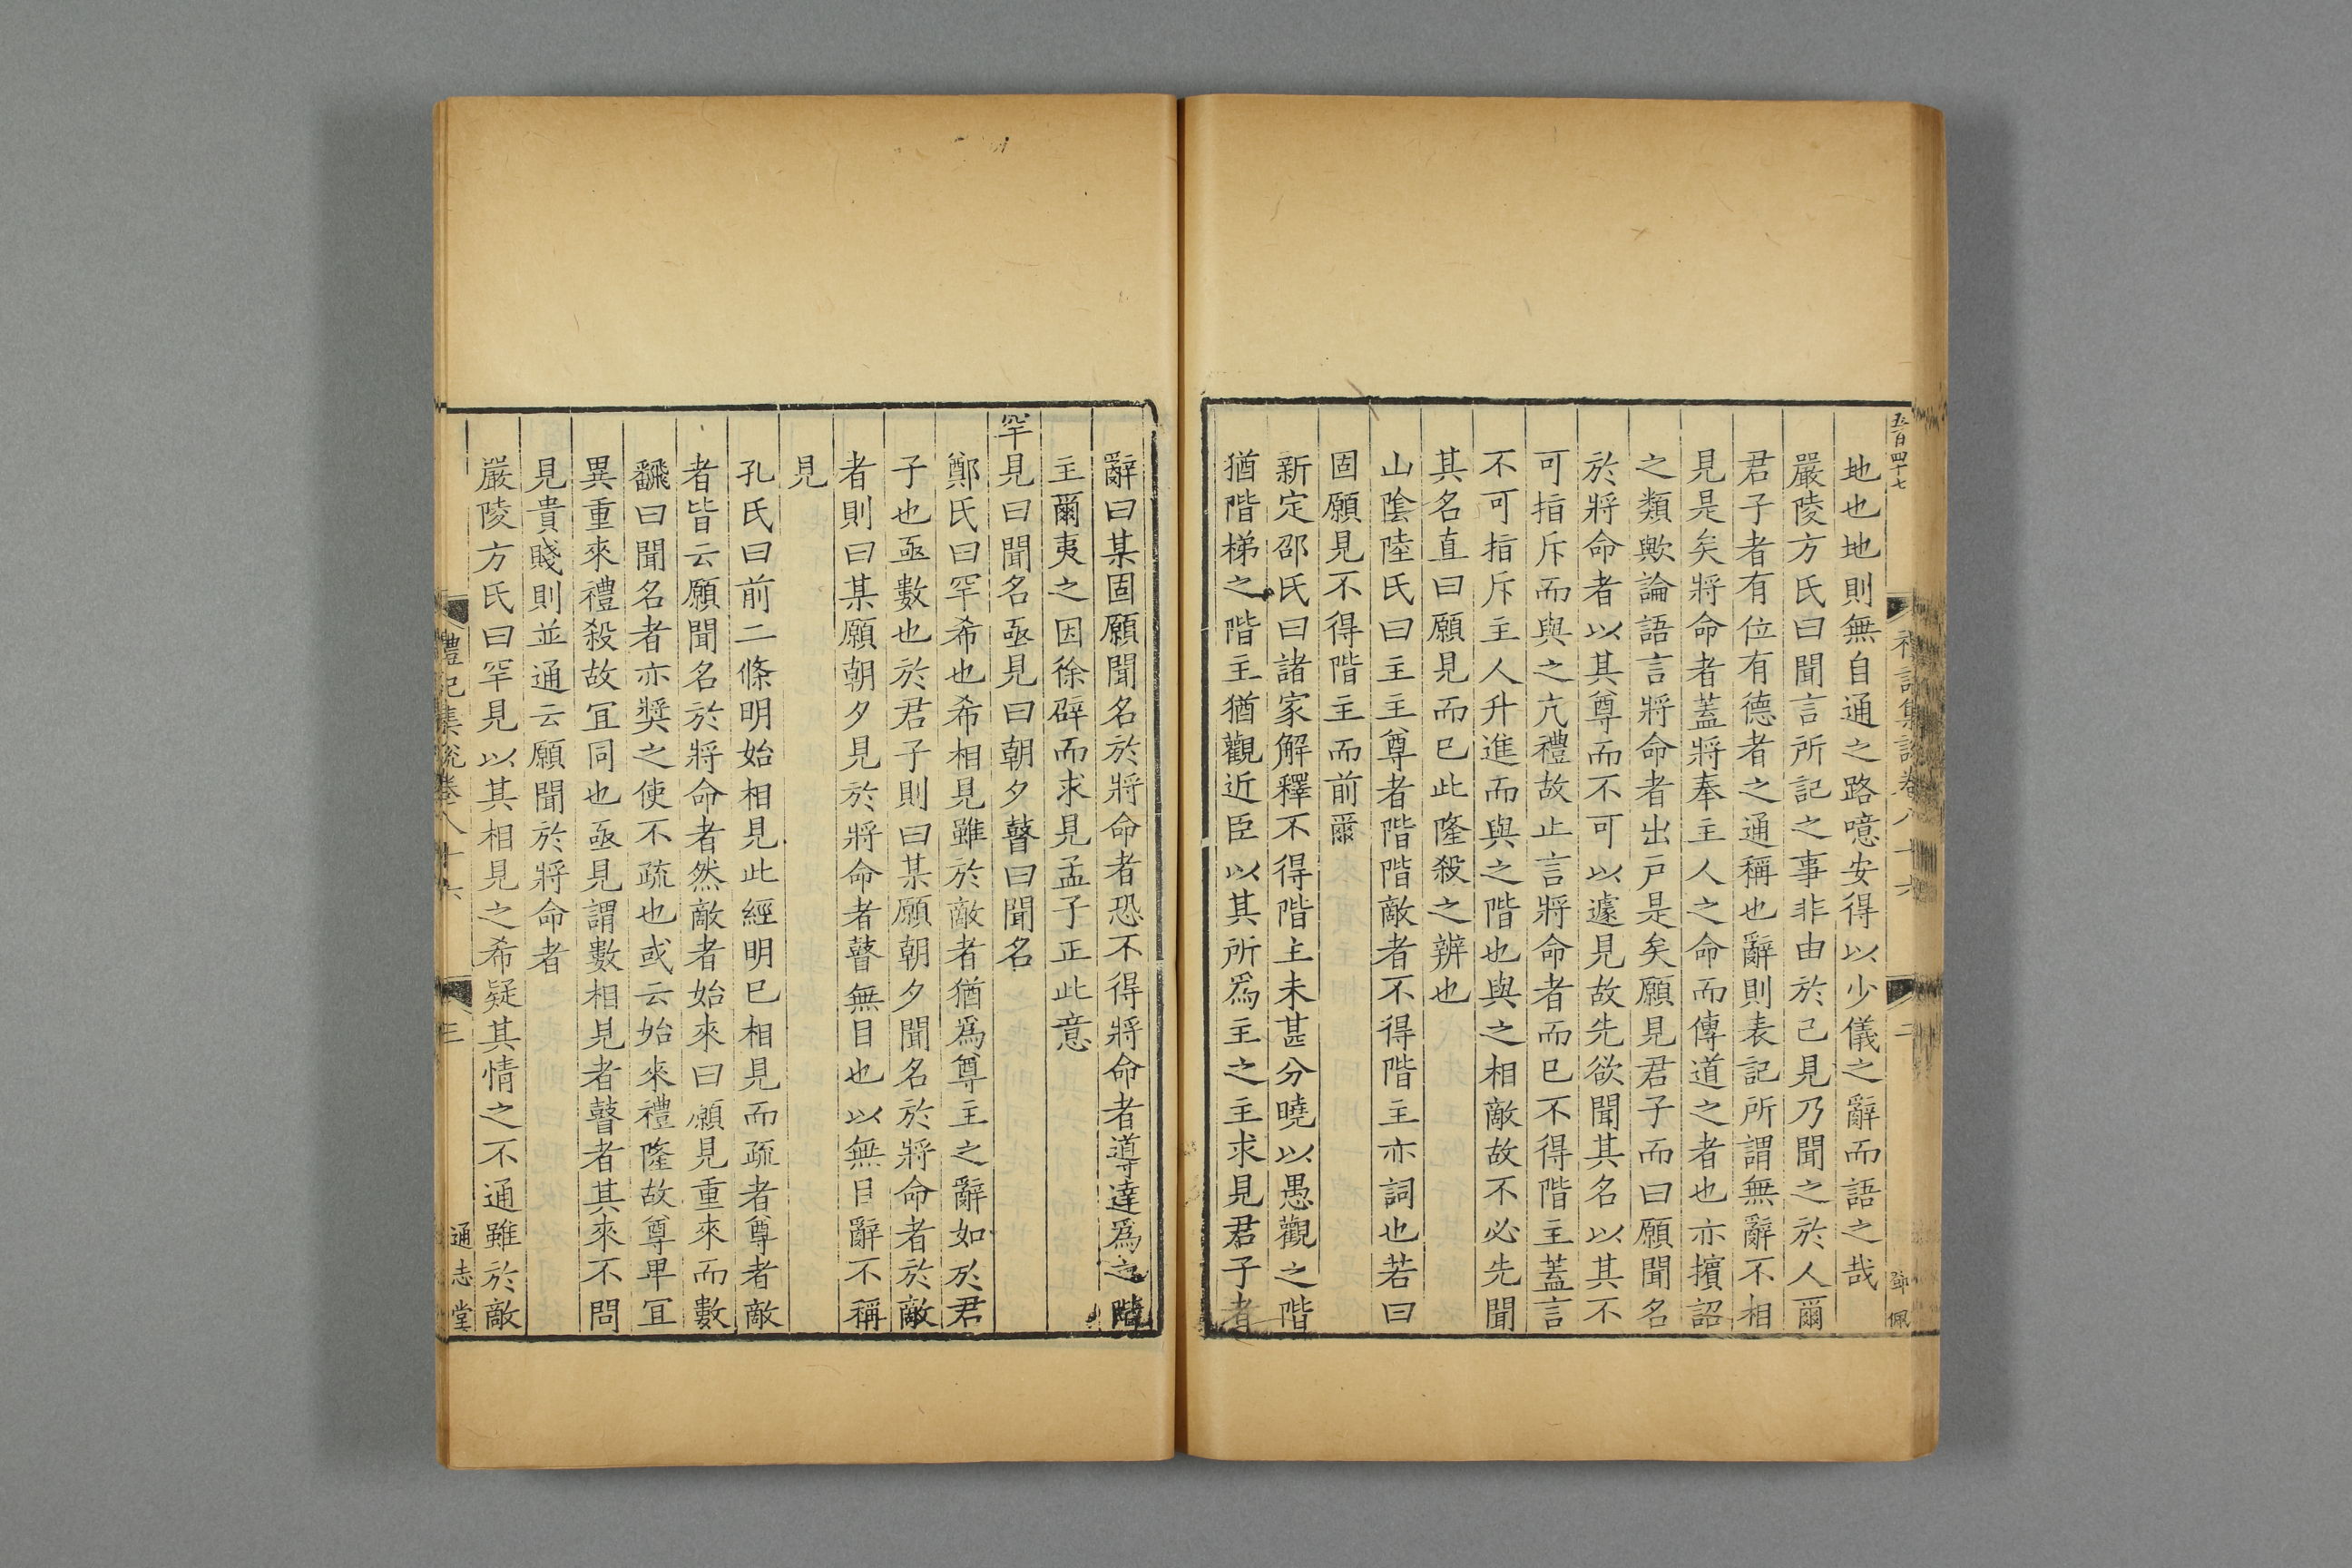 五百四十七
禮記集說卷八十六
二
鄧佩
地也地則無自通之路噫安得以少儀之辭而語之哉
嚴陵方氏曰聞言所記之事非由於己見乃聞之於人爾
君子者有位有德者之通稱也辭則表記所謂無辭不相
見是矣將命者蓋將奉主人之命而傳道之者也亦擯詔
之類歟論語言將命者出戶是矣願見君子而曰願聞名
於將命者以其尊而不可以遽見故先欲聞其名以其不
可指斥而與之亢禮故止言將命者而已不得階主蓋言
不可指斥主人升進而與之階也與之相敵故不必先聞
其名直曰願見而已此隆殺之辨也
山陰陸氏曰主主尊者階階敵者不得階主亦詞也若曰
固願見不得階主而前爾
新定邵氏曰諸家解釋不得階主未甚分曉以愚觀之階
猶階梯之階主猶觀近臣以其所爲主之主求見君子者
辭曰某固願聞名於將命者恐不得將命者導達爲之階
主爾夷之因徐辟而求見孟子正此意
罕見曰聞名亟見曰朝夕瞽曰聞名
鄭氏曰罕希也希相見雖於敵者猶爲尊主之辭如於君
子也亟數也於君子則曰某願朝夕聞名於將命者於敵
者則曰某願朝夕見於將命者瞽無目也以無目辭不稱
見
孔氏曰前二條明始相見此經明已相見而疏者尊者敵
者皆云願聞名於將命者然敵者始來曰願見重來而數
飜曰聞名者亦獎之使不疏也或云始來禮隆故尊卑宜
異重來禮殺故宜同也亟見謂數相見者瞽者其來不問
見貴賤則並通云願聞於將命者
嚴陵方氏曰罕見以其相見之希疑其情之不通雖於敵
禮記集說卷八十六
三
通志堂